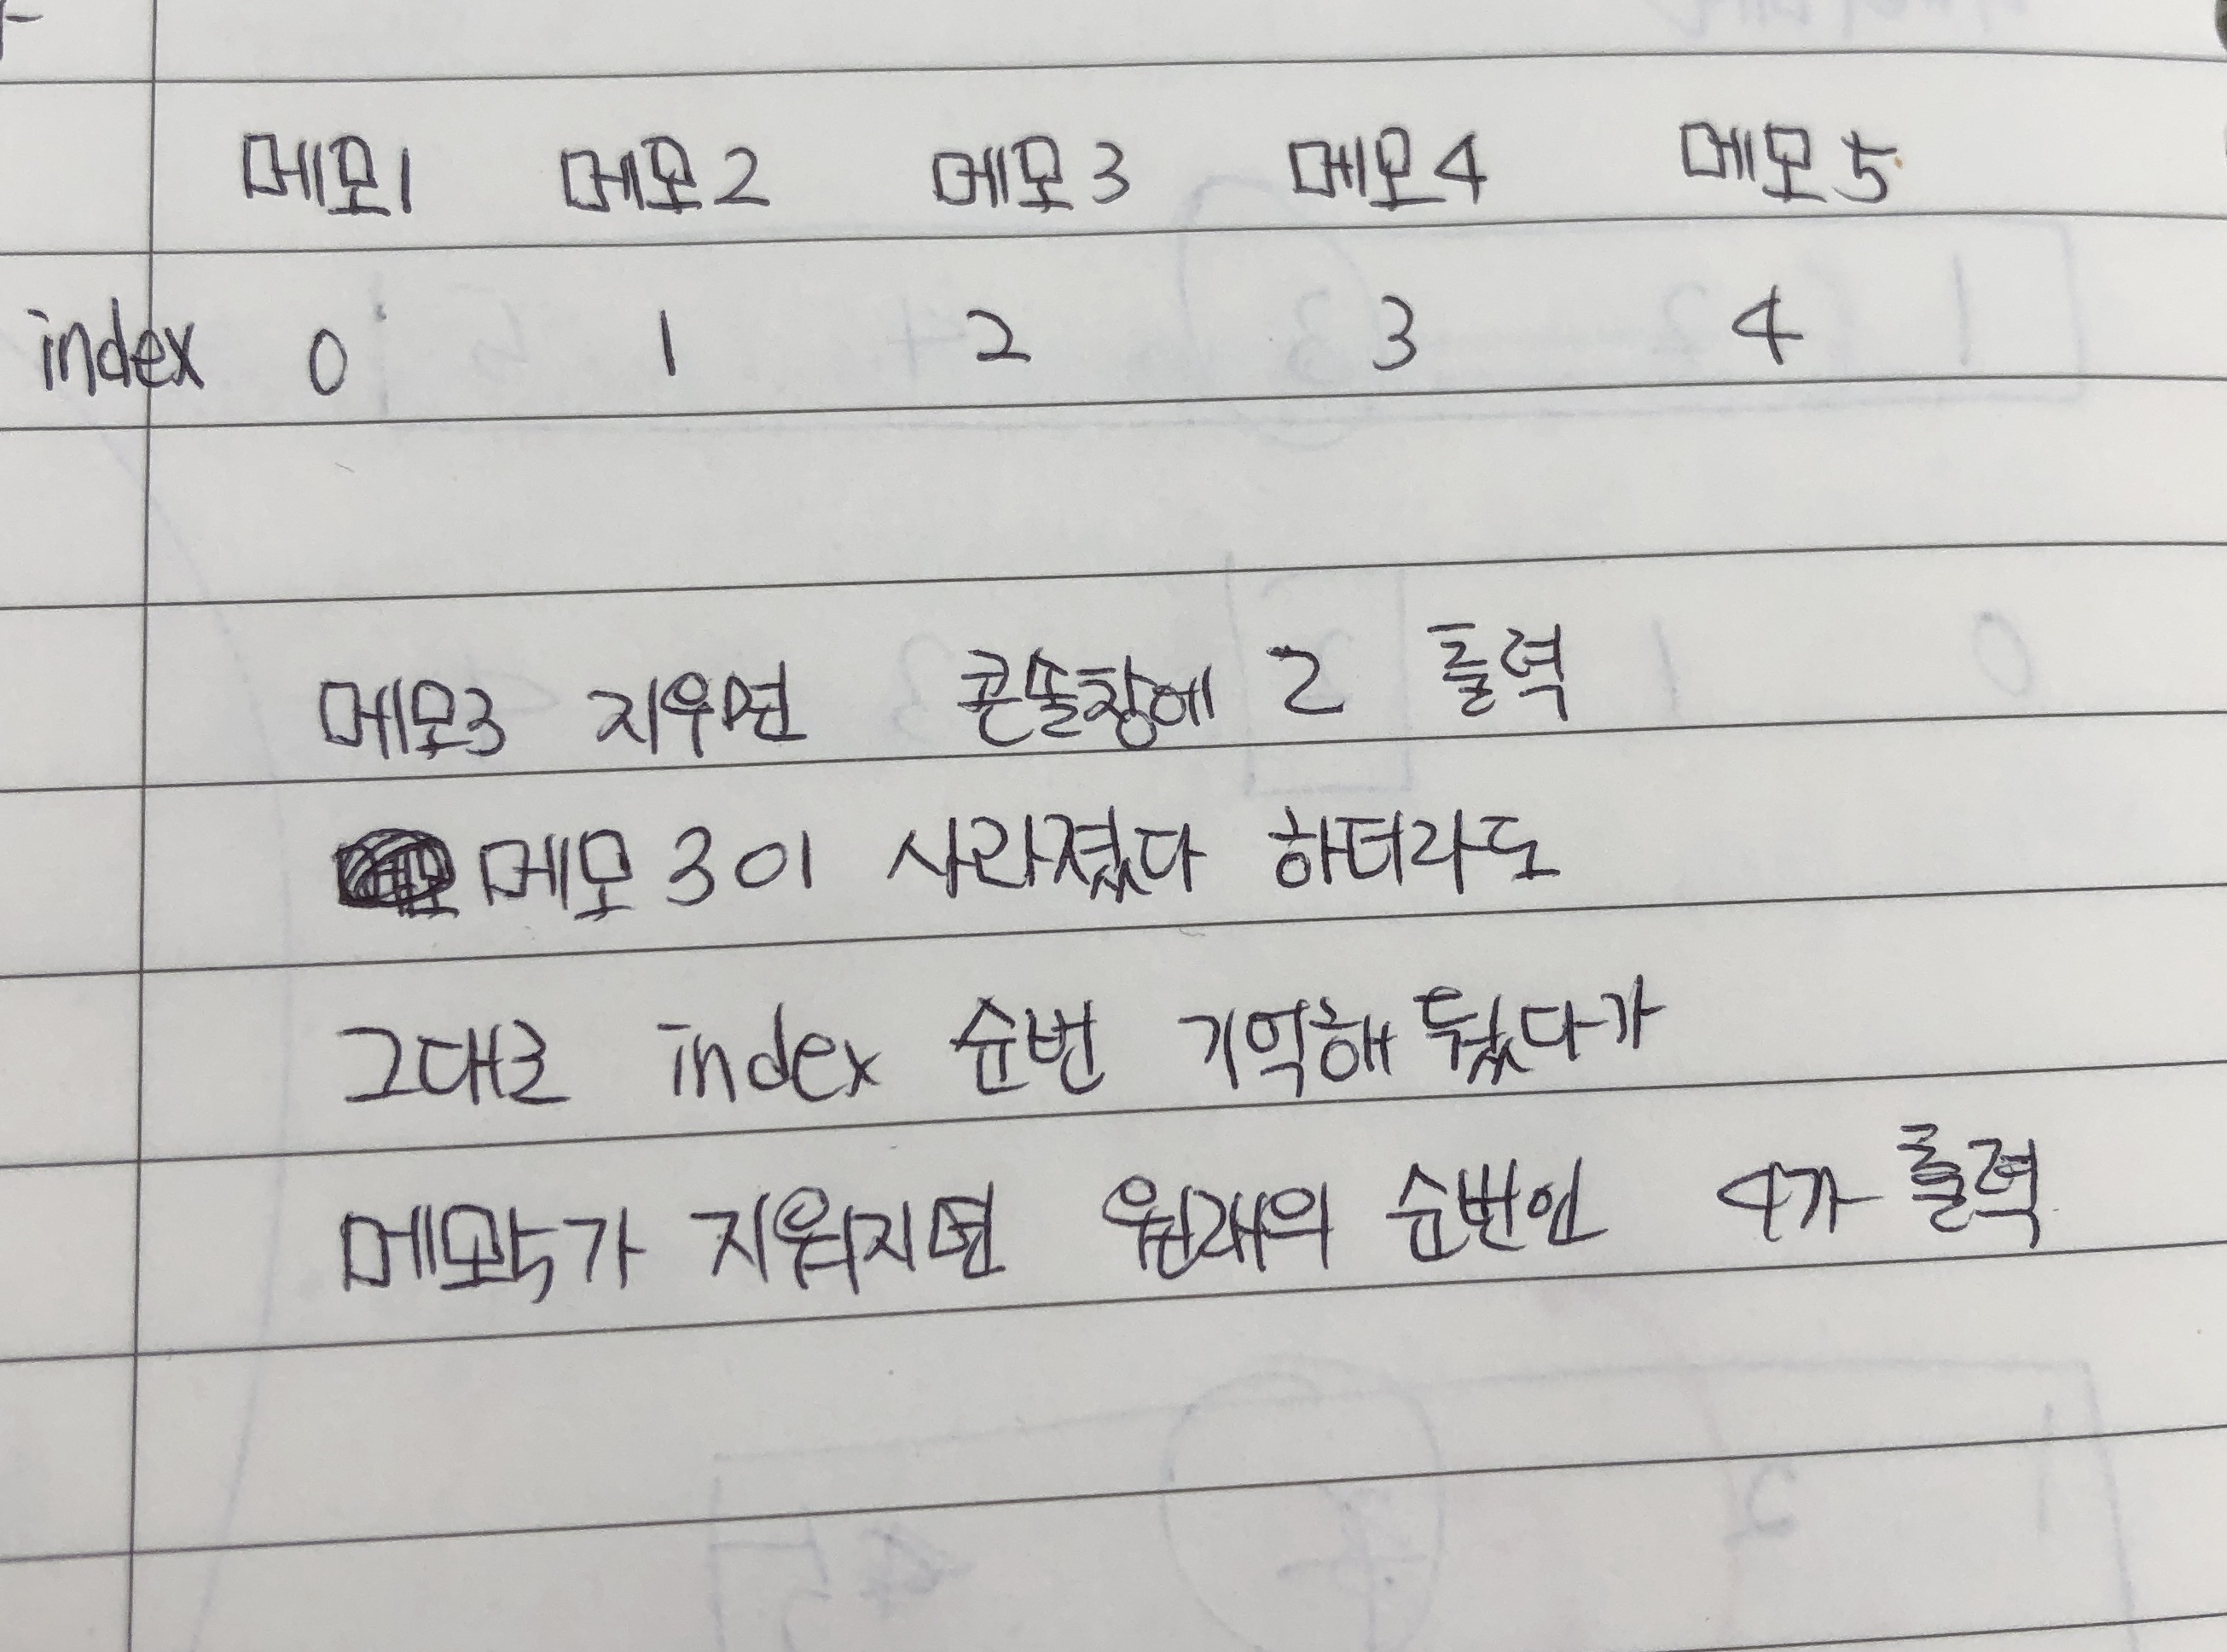 메모1 메모2 메모3 메모4 메모5
index 0 1 2 3 4
메모3 지우면 콘솔창에 2 출력
메모3이 사라졌다 하더라도
그대로 index 순번 기억해 뒀다가
메모5가 지워지면 원래의 순번인 4가 출력